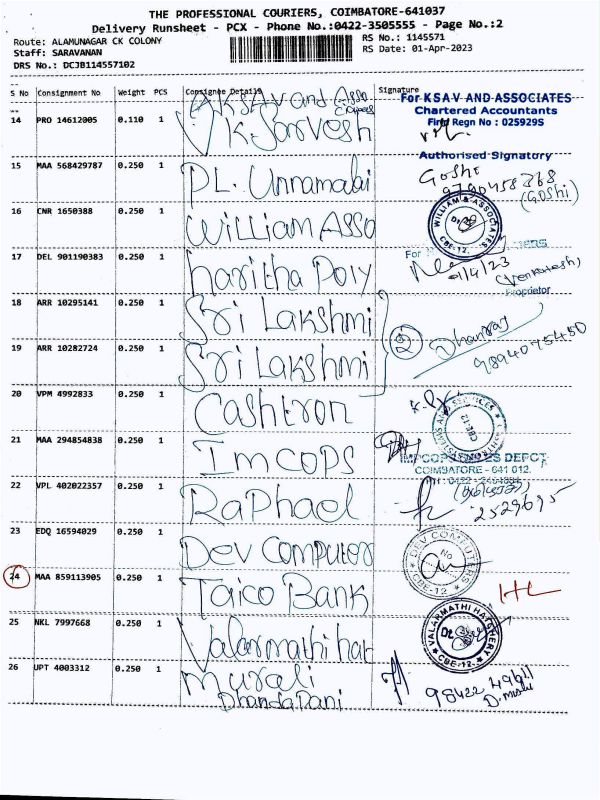 THE PROFESSIONAL COURIERS, COIMBATORE-641037
Delivery Runsheet - PCX - Phone No.:0422-3505555 - Page No.:2
Route: ALAMUNAGAR CK COLONY
RS No.: 1145571
Staff: SARAVANAN
RS Date: 01-Apr-2023
DRS No.: DCJB114557102
S No Consignment No Weight PCS Consignee Details Signature
14 PRO 14612005 0.110 1 AKSAV and Asso
K. Sarvesh
For K S A V AND ASSOCIATES
Chartered Accountants
Firm Regn No : 025929S
Authorised Signatory
15 MAA 568429787 0.250 1 PL. Unnamalai
Goshi
9790458368
(Goshi)
16 CNR 1650388 0.250 1 William Asso
WILLIAM & ASSOCIATES
CBE-12.
17 DEL 901190383 0.250 1 haritha Poly
For
1/4/23
(Venkatesh)
Proprietor
18 ARR 10295141 0.250 1 Sri Lakshmi
19 ARR 10282724 0.250 1 Sri Lakshmi
2 Dhanraj
9894075450
20 VPM 4992833 0.250 1 Cashtron
CBE-12
21 MAA 294854838 0.250 1 Imcops
IMPCOPS SALES DEPOT
COIMBATORE - 641 012.
22 VPL 402022357 0.250 1 Raphael
2529695
23 EDQ 16594029 0.250 1 Dev Computer
DEV COMPUTERS
No
CBE-12
24 MAA 859113905 0.250 1 Taico Bank
25 NKL 7997668 0.250 1 Valarmathi hat
VALARMATHI HATCHERY
CBE-12.
26 UPT 4003312 0.250 1 Murali
DhandaPani
98422 49611